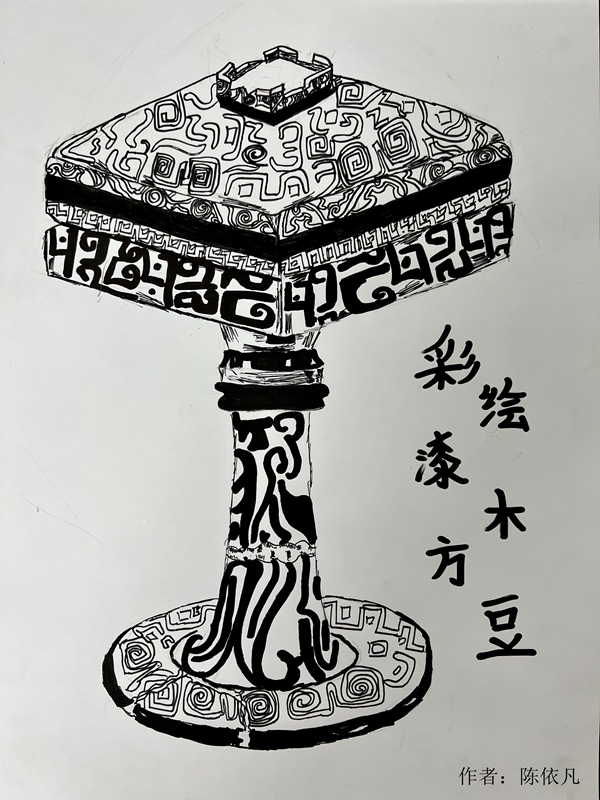 彩绘漆木方豆
作者：陈依凡